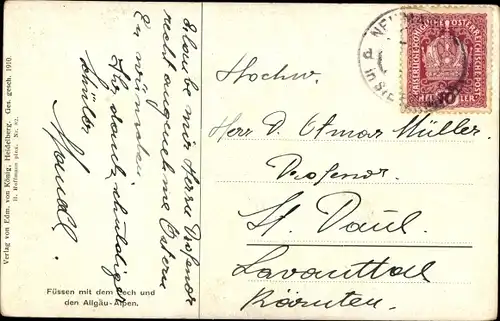 Erlaube mir Herrn Professor
recht angenehme Ostern
zu wünschen
Ihr dankschuldiger
Schüler
Hochw.
Herr P. Otmar Müller
Professor
St. Paul
Lavanttal
Kärnten
Füssen mit dem Lech und
den Allgäu-Alpen.
Verlag von Edm. von König, Heidelberg. Ges. gesch. 1910.
H. Hoffmann pinx. Nr. 82.
KAISERLICHE KÖNIGLICHE ÖSTERREICHISCHE POST
10 HELLER 10